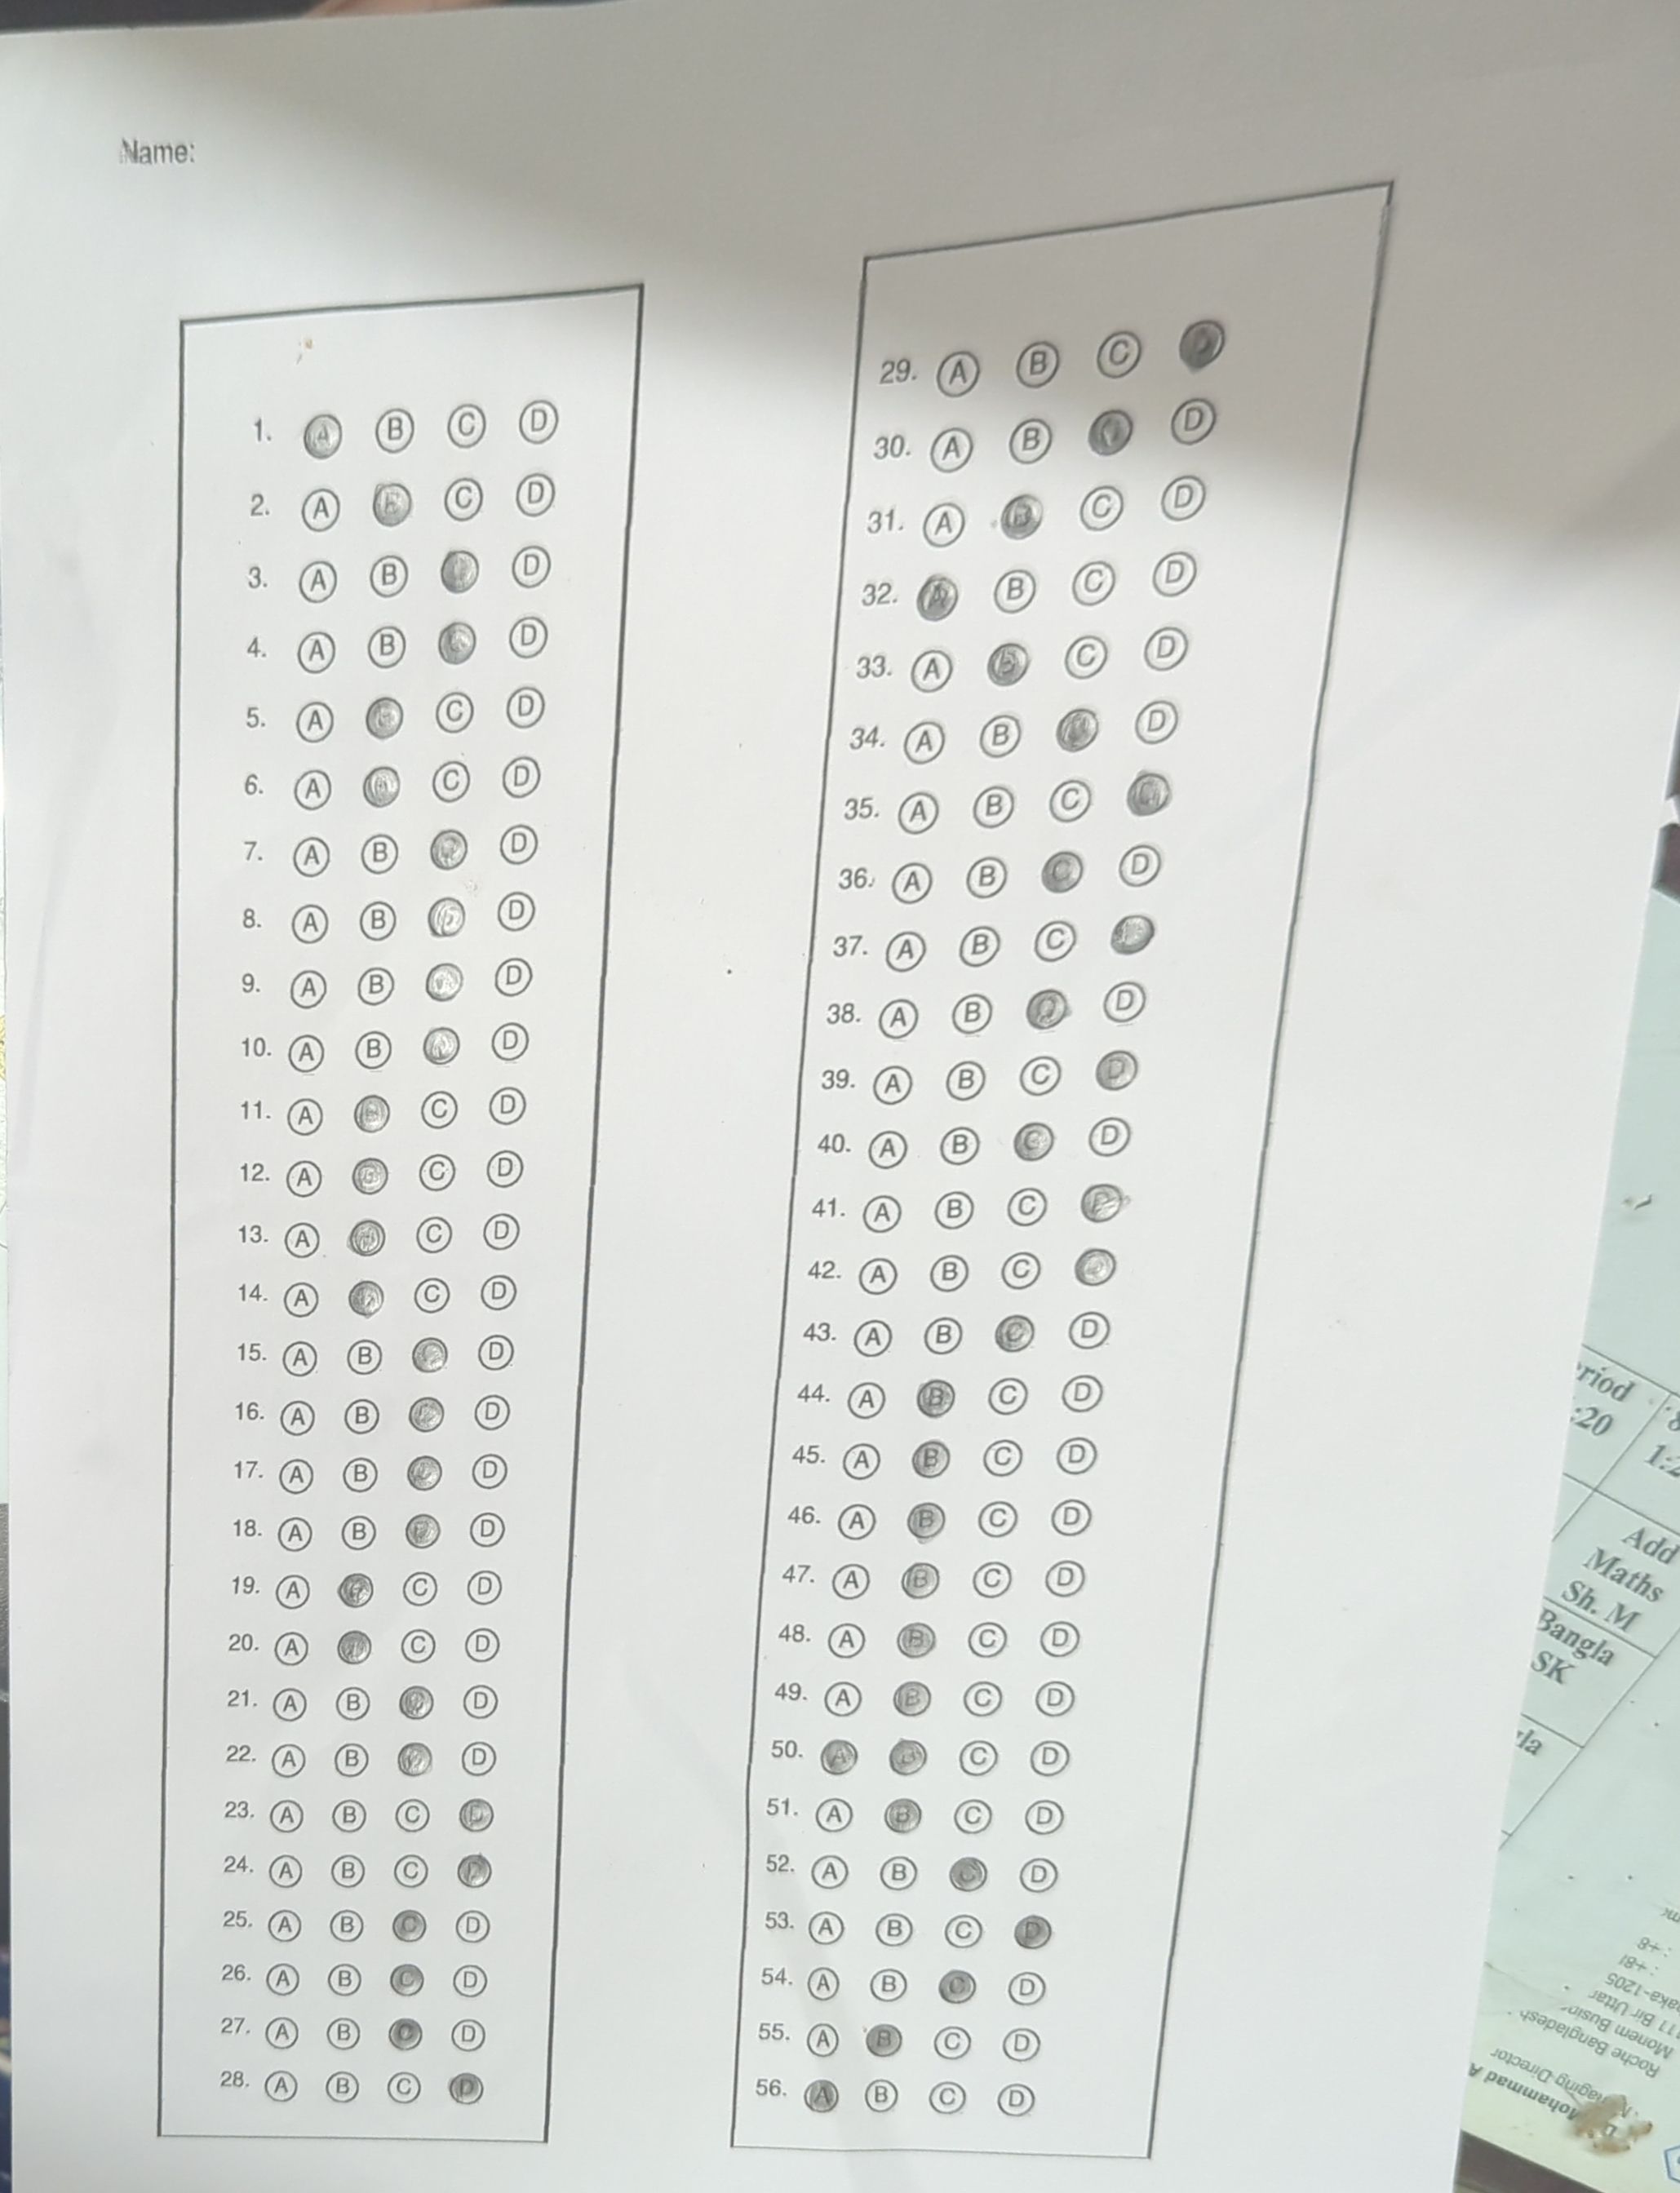 Name:
1. A B C D
2. A B C D
3. A B C D
4. A B C D
5. A B C D
6. A B C D
7. A B C D
8. A B C D
9. A B C D
10. A B C D
11. A B C D
12. A B C D
13. A B C D
14. A B C D
15. A B C D
16. A B C D
17. A B C D
18. A B C D
19. A B C D
20. A B C D
21. A B C D
22. A B C D
23. A B C D
24. A B C D
25. A B C D
26. A B C D
27. A B C D
28. A B C D
29. A B C D
30. A B C D
31. A B C D
32. A B C D
33. A B C D
34. A B C D
35. A B C D
36. A B C D
37. A B C D
38. A B C D
39. A B C D
40. A B C D
41. A B C D
42. A B C D
43. A B C D
44. A B C D
45. A B C D
46. A B C D
47. A B C D
48. A B C D
49. A B C D
50. A B C D
51. A B C D
52. A B C D
53. A B C D
54. A B C D
55. A B C D
56. A B C D
:20
Add
Maths
Sh. M
Bangla
SK
Mohammad A
Director
Roche Bangladesh
Monem Busin
111 Bir Uttar
aka-1205
: +8